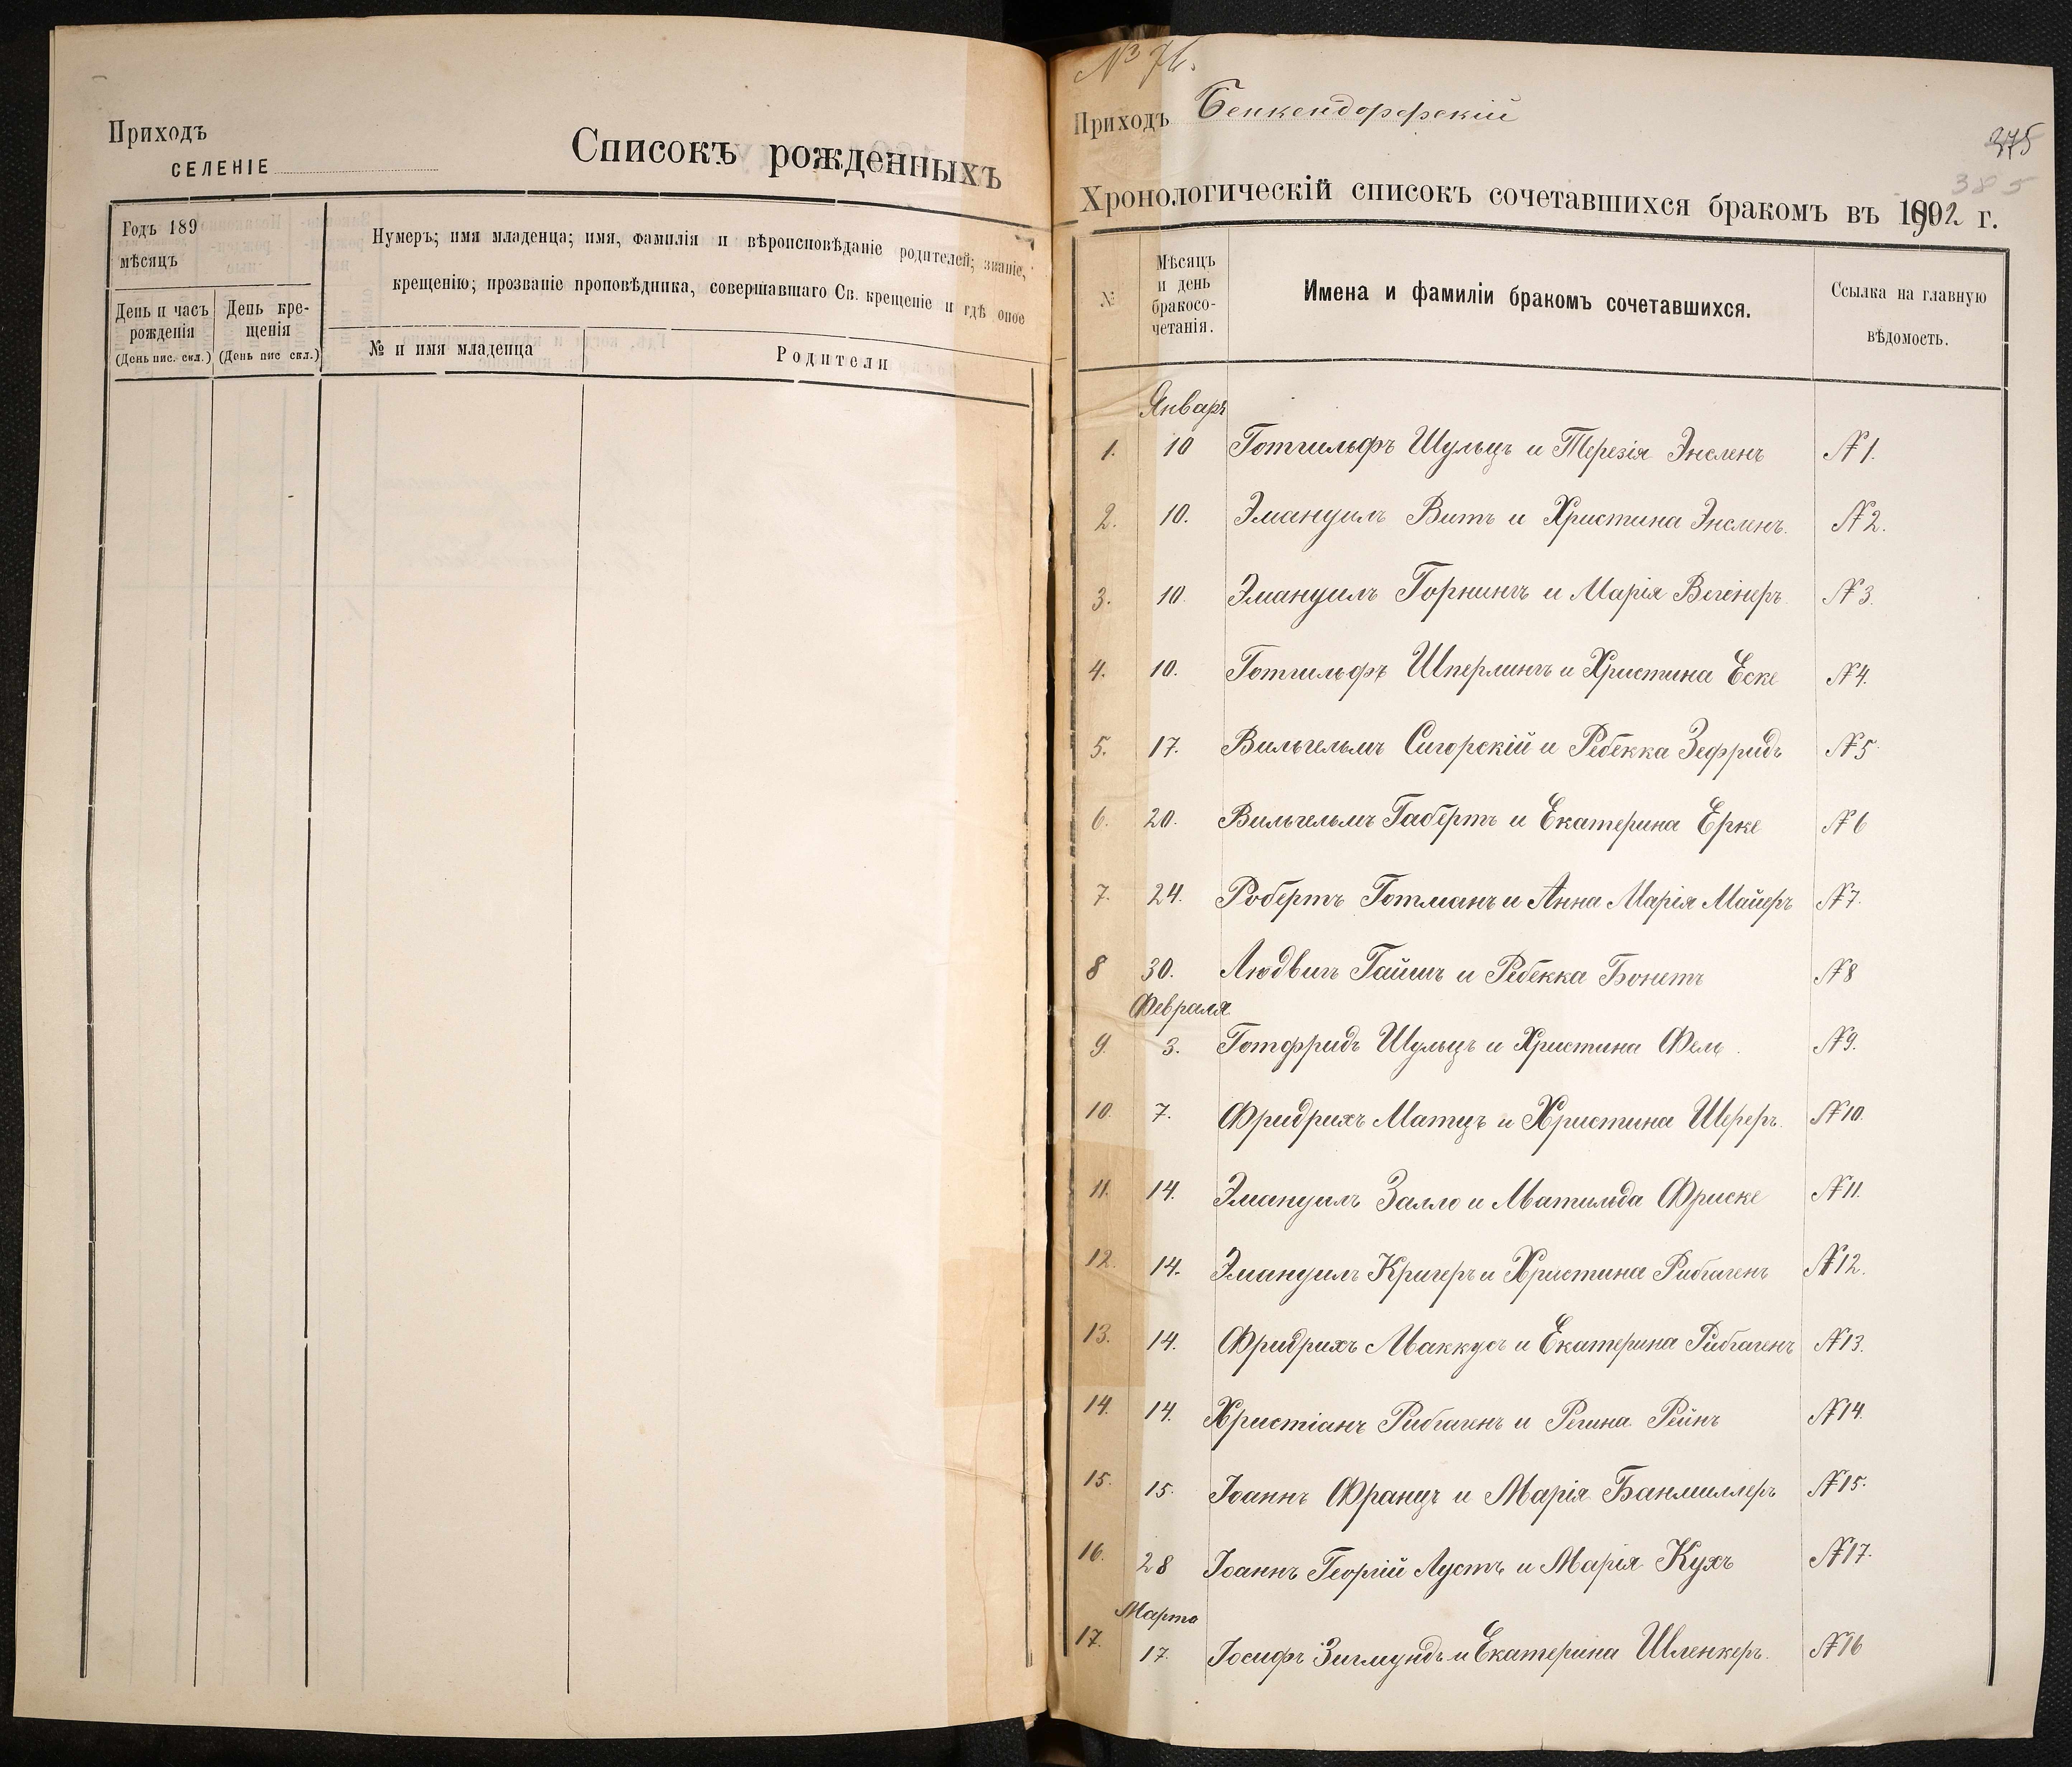 Приходъ
СЕЛЕНІЕ
Списокъ рожденныхъ
Годъ 189
мѣсяцъ
День и часъ рожденія
(День пис. скл.)
День крещенія
(День пис скл.)
Нумеръ; имя младенца; имя, фамилія и вѣроисповѣданіе родителей; званіе,
крещенію; прозваніе проповѣдника, совершавшаго Св. крещеніе и гдѣ оное
№ и имя младенца
Родители
№ 76.
Приходъ Бенкендорфскій
375
385
Хронологическій списокъ сочетавшихся бракомъ въ 1902 г.
№
Мѣсяцъ
и день
бракосо-
четанія.
Имена и фамиліи бракомъ сочетавшихся.
Ссылка на главную
вѣдомость.
Январь
1. 10 Готгильфъ Шульцъ и Терезія Энсленъ №1.
2. 10. Эмануилъ Витъ и Христина Энсленъ. №2.
3. 10. Эмануилъ Горнингъ и Марія Вегенеръ №3.
4. 10. Готгильфъ Шперлингъ и Христина Еске №4.
5. 17. Вильгельмъ Сигорскій и Ребекка Зефридъ №5.
6. 20. Вильгельмъ Габертъ и Екатерина Ерке №6
7. 24. Робертъ Готманъ и Анна Марія Майеръ №7.
8 30. Людвигъ Гайшъ и Ребекка Бонетъ №8
Февраля
9. 3. Готфридъ Шульцъ и Христина Фель. №9.
10. 7. Фридрихъ Матцъ и Христина Шереръ. №10.
11. 14. Эмануилъ Залло и Матильда Фриске №11.
12. 14. Эмануилъ Кригеръ и Христина Рибгагенъ №12.
13. 14. Фридрихъ Маккусъ и Екатерина Рибгагенъ №13.
14. 14. Христіанъ Рибгагенъ и Регина Рейнъ №14.
15. 15. Іоаннъ Францъ и Марія Банмиллеръ №15.
16. 28 Іоаннъ Георгій Лустъ и Марія Кухъ №17.
Марта
17. 17. Іосифъ Зигмундъ и Екатерина Шленкеръ. №16